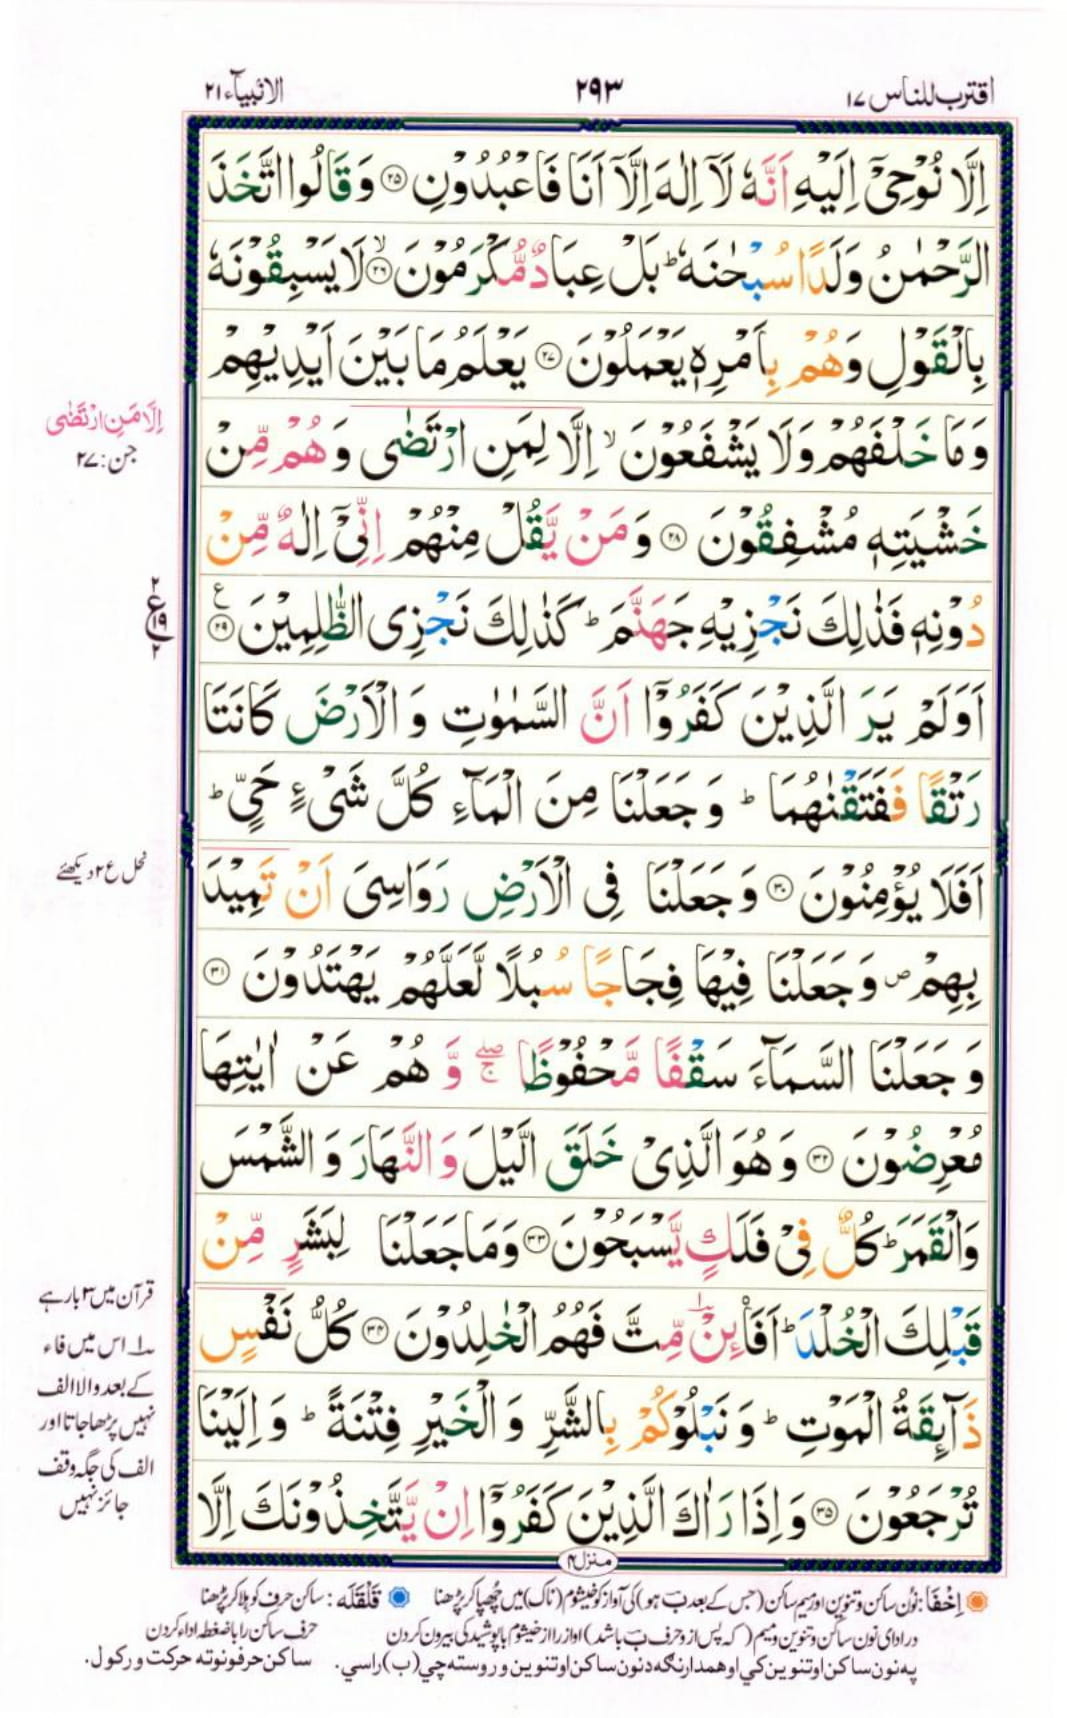 اقترب للناس ۱۷
۲۹۳
الانبیآء ۲۱
اِلَّا نُوۡحِیۡۤ اِلَیۡهِ اَنَّهٗ لَاۤ اِلٰهَ اِلَّاۤ اَنَا فَاعۡبُدُوۡنِ ﴿۲۵﴾ وَ قَالُوا اتَّخَذَ
الرَّحۡمٰنُ وَلَدًا سُبۡحٰنَهٗ ؕ بَلۡ عِبَادٌ مُّكۡرَمُوۡنَ ﴿ۙ۲۶﴾ لَا یَسۡبِقُوۡنَهٗ
بِالۡقَوۡلِ وَ هُمۡ بِاَمۡرِهٖ یَعۡمَلُوۡنَ ﴿۲۷﴾ یَعۡلَمُ مَا بَیۡنَ اَیۡدِیۡهِمۡ
وَ مَا خَلۡفَهُمۡ وَ لَا یَشۡفَعُوۡنَ ۙ اِلَّا لِمَنِ ارۡتَضٰی وَ هُمۡ مِّنۡ
اِلَّا مَنِ ارۡتَضٰی
جن : ۲۷
خَشۡیَتِهٖ مُشۡفِقُوۡنَ ﴿۲۸﴾ وَ مَنۡ یَّقُلۡ مِنۡهُمۡ اِنِّیۡۤ اِلٰهٌ مِّنۡ
دُوۡنِهٖ فَذٰلِكَ نَجۡزِیۡهِ جَهَنَّمَ ؕ كَذٰلِكَ نَجۡزِی الظّٰلِمِیۡنَ ﴿۲۹﴾ ع
۲
ع ۱۹
۲
اَوَ لَمۡ یَرَ الَّذِیۡنَ كَفَرُوۡۤا اَنَّ السَّمٰوٰتِ وَ الۡاَرۡضَ كَانَتَا
رَتۡقًا فَفَتَقۡنٰهُمَا ؕ وَ جَعَلۡنَا مِنَ الۡمَآءِ كُلَّ شَیۡءٍ حَیٍّ ؕ
اَفَلَا یُؤۡمِنُوۡنَ ﴿۳۰﴾ وَ جَعَلۡنَا فِی الۡاَرۡضِ رَوَاسِیَ اَنۡ تَمِیۡدَ
نحل ع ۲ دیکھئے
بِهِمۡ ۪ وَ جَعَلۡنَا فِیۡهَا فِجَاجًا سُبُلًا لَّعَلَّهُمۡ یَهۡتَدُوۡنَ ﴿۳۱﴾
وَ جَعَلۡنَا السَّمَآءَ سَقۡفًا مَّحۡفُوۡظًا ۚۖ وَّ هُمۡ عَنۡ اٰیٰتِهَا
مُعۡرِضُوۡنَ ﴿۳۲﴾ وَ هُوَ الَّذِیۡ خَلَقَ الَّیۡلَ وَ النَّهَارَ وَ الشَّمۡسَ
وَ الۡقَمَرَ ؕ كُلٌّ فِیۡ فَلَكٍ یَّسۡبَحُوۡنَ ﴿۳۳﴾ وَ مَا جَعَلۡنَا لِبَشَرٍ مِّنۡ
قَبۡلِكَ الۡخُلۡدَ ؕ اَفَا۠ئِنۡ مِّتَّ فَهُمُ الۡخٰلِدُوۡنَ ﴿۳۴﴾ كُلُّ نَفۡسٍ
ذَآئِقَةُ الۡمَوۡتِ ؕ وَ نَبۡلُوۡكُمۡ بِالشَّرِّ وَ الۡخَیۡرِ فِتۡنَةً ؕ وَ اِلَیۡنَا
تُرۡجَعُوۡنَ ﴿۳۵﴾ وَ اِذَا رَاٰكَ الَّذِیۡنَ كَفَرُوۡۤا اِنۡ یَّتَّخِذُوۡنَكَ اِلَّا
قرآن میں ۳ بار ہے
۱ اس میں فاء
کے بعد والا الف
نہیں پڑھا جاتا اور
الف کی جگہ وقف
جائز نہیں
منزل ۴
اِخْفَا : نُون ساکن و تنوین اور میم ساکن (جس کے بعد بَ ہو) کی آواز کو خیشوم (ناک) میں چُھپا کر پڑھنا
قَلْقَلَه : ساکن حرف کو ہلا کر پڑھنا
در ادای نون ساکن و تنوین و میم (که پس از و حرف بَ باشد) اواز را از خیشوم با پوشیدگی بیرون کردن
حرف ساکن را با ضغطه اداء کردن
په نون ساکن او تنوین کي او همدارنګه د نون ساکن او تنوین و روسته چي (ب) راسي.
ساکن حرفونو ته حرکت ورکول.